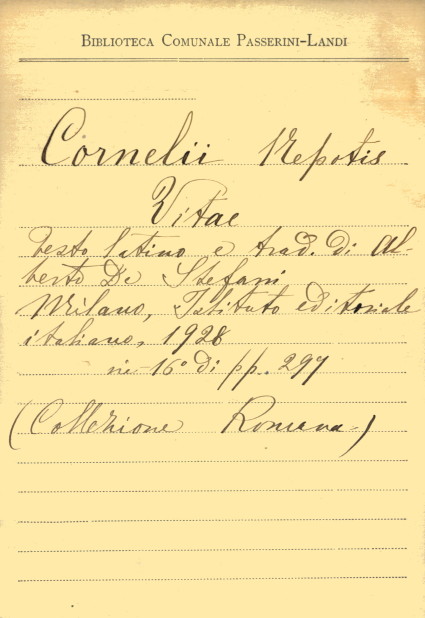 BIBLIOTECA COMUNALE PASSERINI-LANDI
Cornelii Nepotis
Vitae
testo latino e trad. di Al-
berto De Stefani
Milano, Istituto editoriale
italiano, 1928
in-16° di pp. 297
(Collezione Romana)